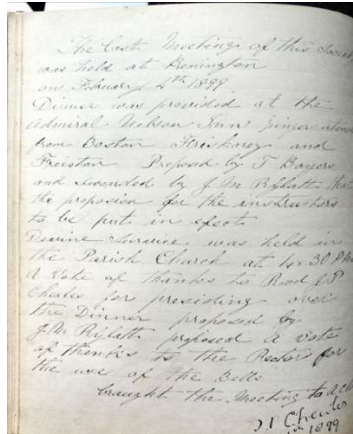 The Last Meeting of this Society
was held at Benington
on February 4th 1899
Dinner was provided at the
Admiral Nelson Inn ringers attend
from Boston Friskney and
Freiston Proposed by T
and seconded by J M Rylatt that
the proposion for the instructors
to be put in efect
Devine Survice was held in
the Parish Church at 4.30 P
A Vote of thanks to J P
for presiding over
the Dinner proposed by
J M Rylatt proposed A vote
of thanks to the for
the use of the Bells
braught the Meeting to A
1899